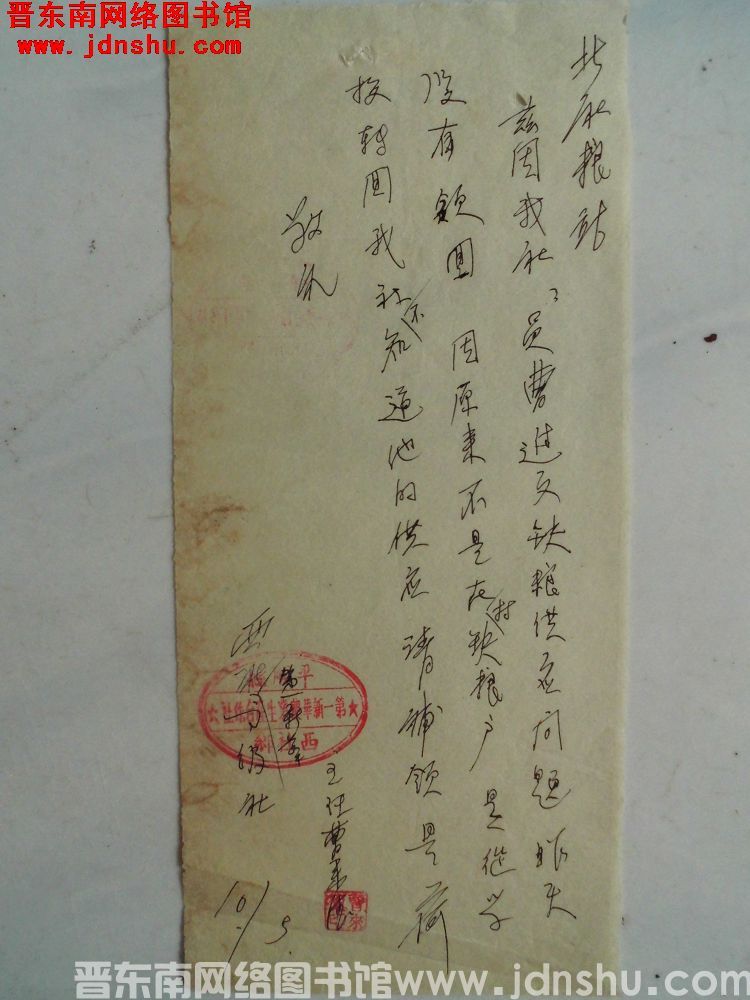 晋东南网络图书馆
www.jdnshu.com
北社粮站
兹因我社社员曹进文缺粮供应问题昨天
没有领回 因原来不是在村缺粮户 是从学
校转回我社不知道他的供应 请补领是荷
敬礼
主任曹来
10/5
晋东南网络图书馆www.jdnshu.com